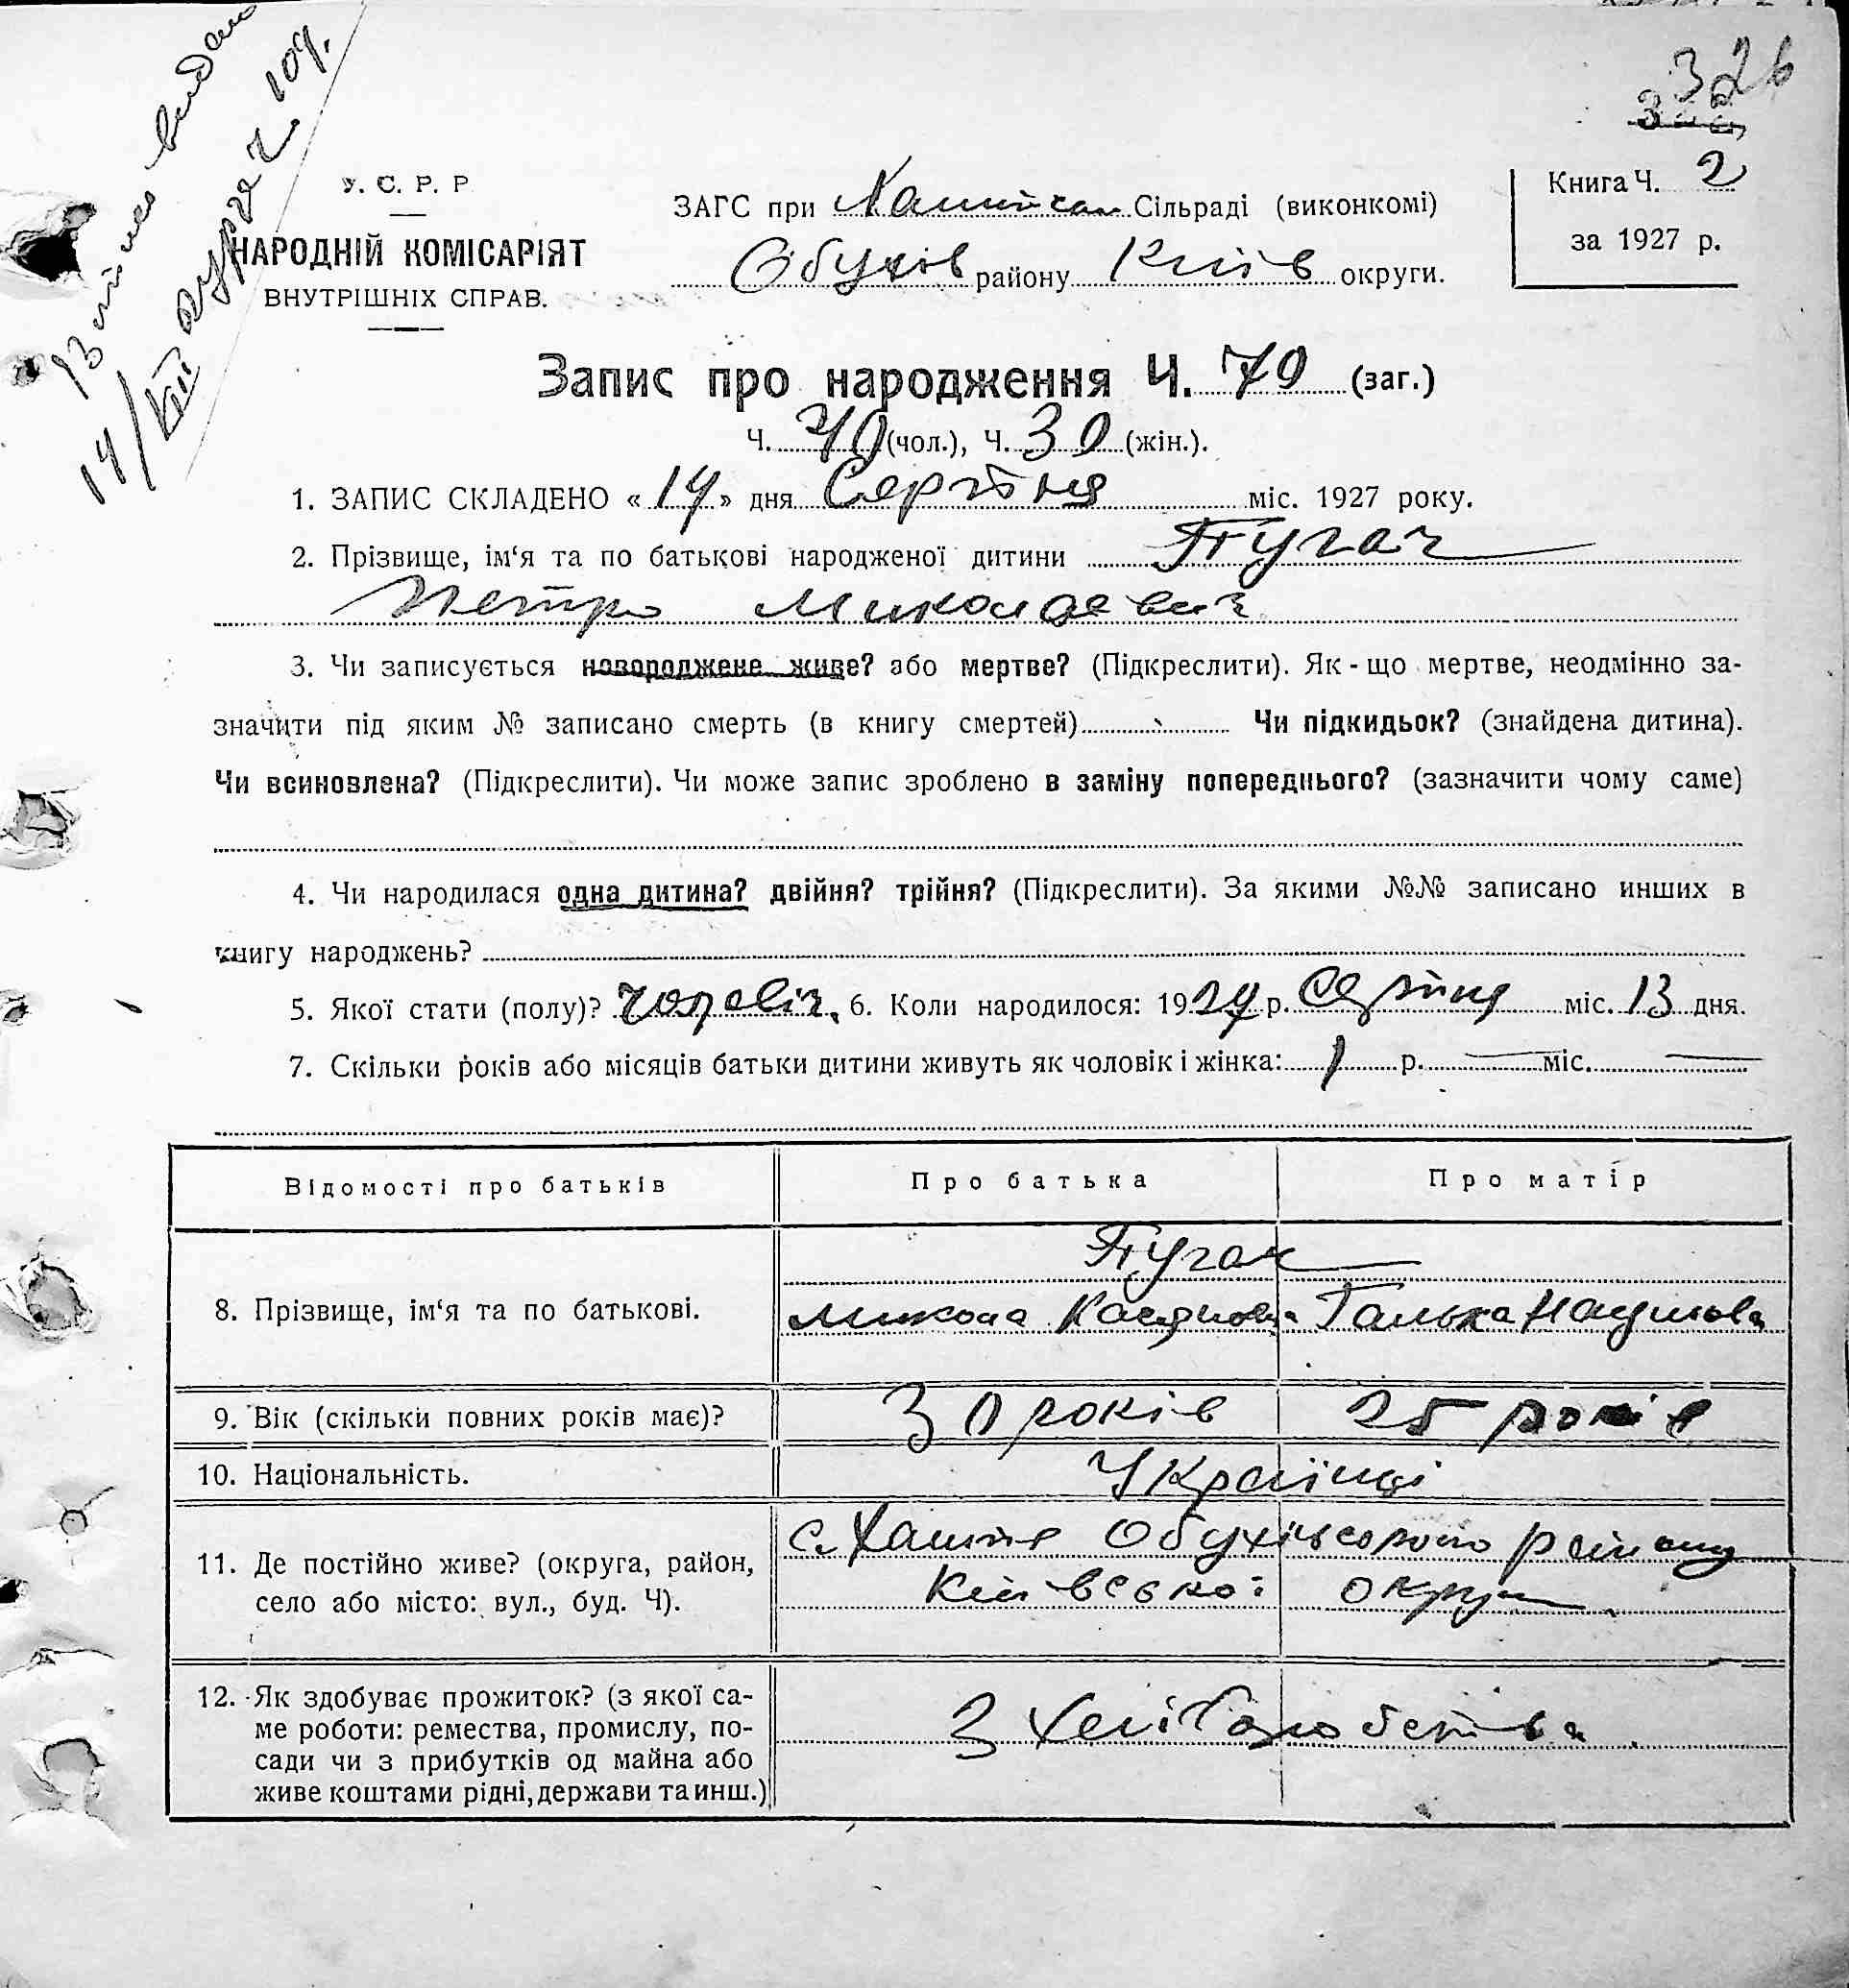 326
Витяг видано
14/VIII 27 р за ч. 109.
У. С. Р. Р
НАРОДНІЙ КОМІСАРІЯТ
ВНУТРІШНІХ СПРАВ.
ЗАГС при Сільраді (виконкомі)
Обухів району Київ округи.
Книга Ч. 2
за 1927 р.
Запис про народження Ч. 79 (заг.)
Ч. 40 (чол.), Ч. 39 (жін.).
1. ЗАПИС СКЛАДЕНО « 14 » дня Серпня міс. 1927 року.
2. Прізвище, ім‘я та по батькові народженої дитини Пугач
Петро Миколаевич
3. Чи записується новороджене живе? або мертве? (Підкреслити). Як-що мертве, неодмінно за-
значити під яким № записано смерть (в книгу смертей) Чи підкидьок? (знайдена дитина).
Чи всиновлена? (Підкреслити). Чи може запис зроблено в заміну попереднього? (зазначити чому саме)
4. Чи народилася одна дитина? двійня? трійня? (Підкреслити). За якими №№ записано инших в
книгу народжень?
5. Якої стати (полу)? чоловіч. 6. Коли народилося: 1927 р. Серпня міс. 13 дня.
7. Скільки років або місяців батьки дитини живуть як чоловік і жінка: 1 р. — міс. —
Відомості про батьків Про батька Про матір
Пугач
8. Прізвище, ім‘я та по батькові. Микола Касянова Галька Наумова
9. Вік (скільки повних років має)? 30 років 25 років
10. Національність. Українці
11. Де постійно живе? (округа, район,
село або місто: вул., буд. Ч). с. Обухівського району
Київської округи.
12. Як здобуває прожиток? (з якої са-
ме роботи: ремества, промислу, по-
сади чи з прибутків од майна або
живе коштами рідні, держави та инш.)
З хліборобства.